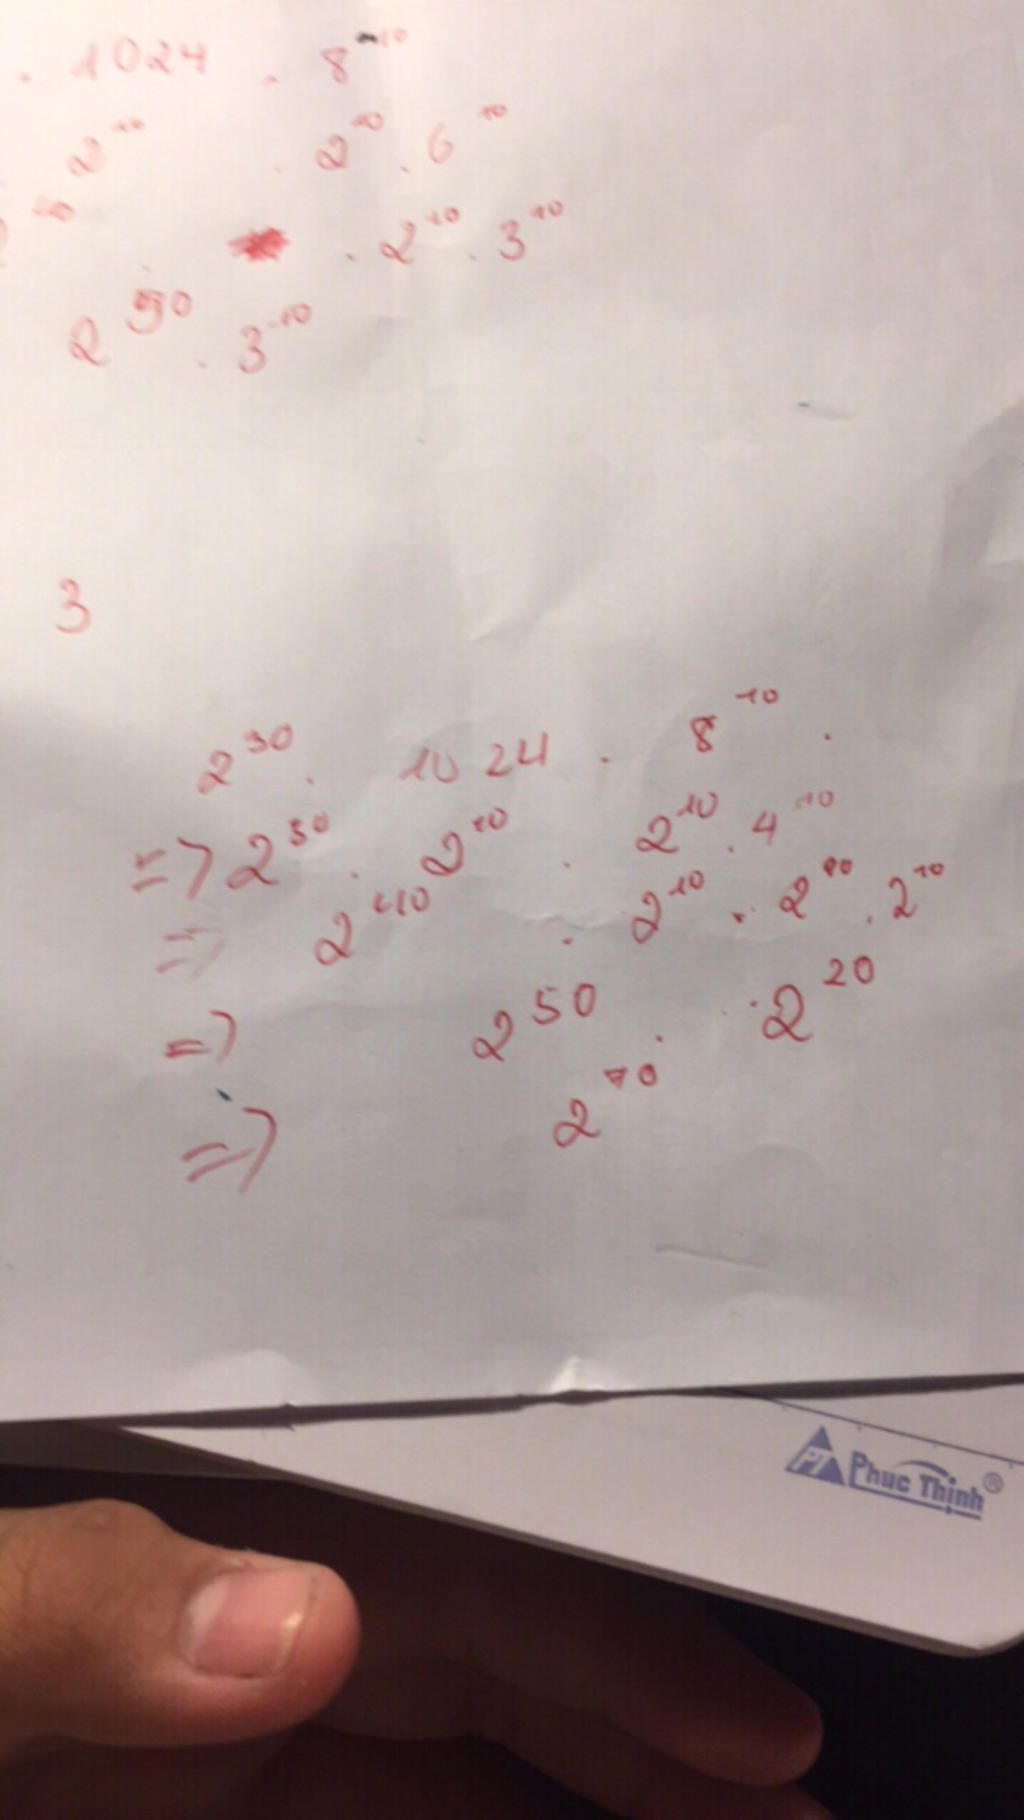 . 1024 . 8^10
2^10 . 2^10 . 6^10
. 2^10 . 3^10
2^50 . 3^10
3
2^30 . 1024 . 8^10 .
=> 2^30 . 2^10 . 2^10 . 4^10
=> 2^40 . 2^10 . 2^10 . 2^10
=> 2^50 . . 2^20
=> 2^70
Phuc Thinh®